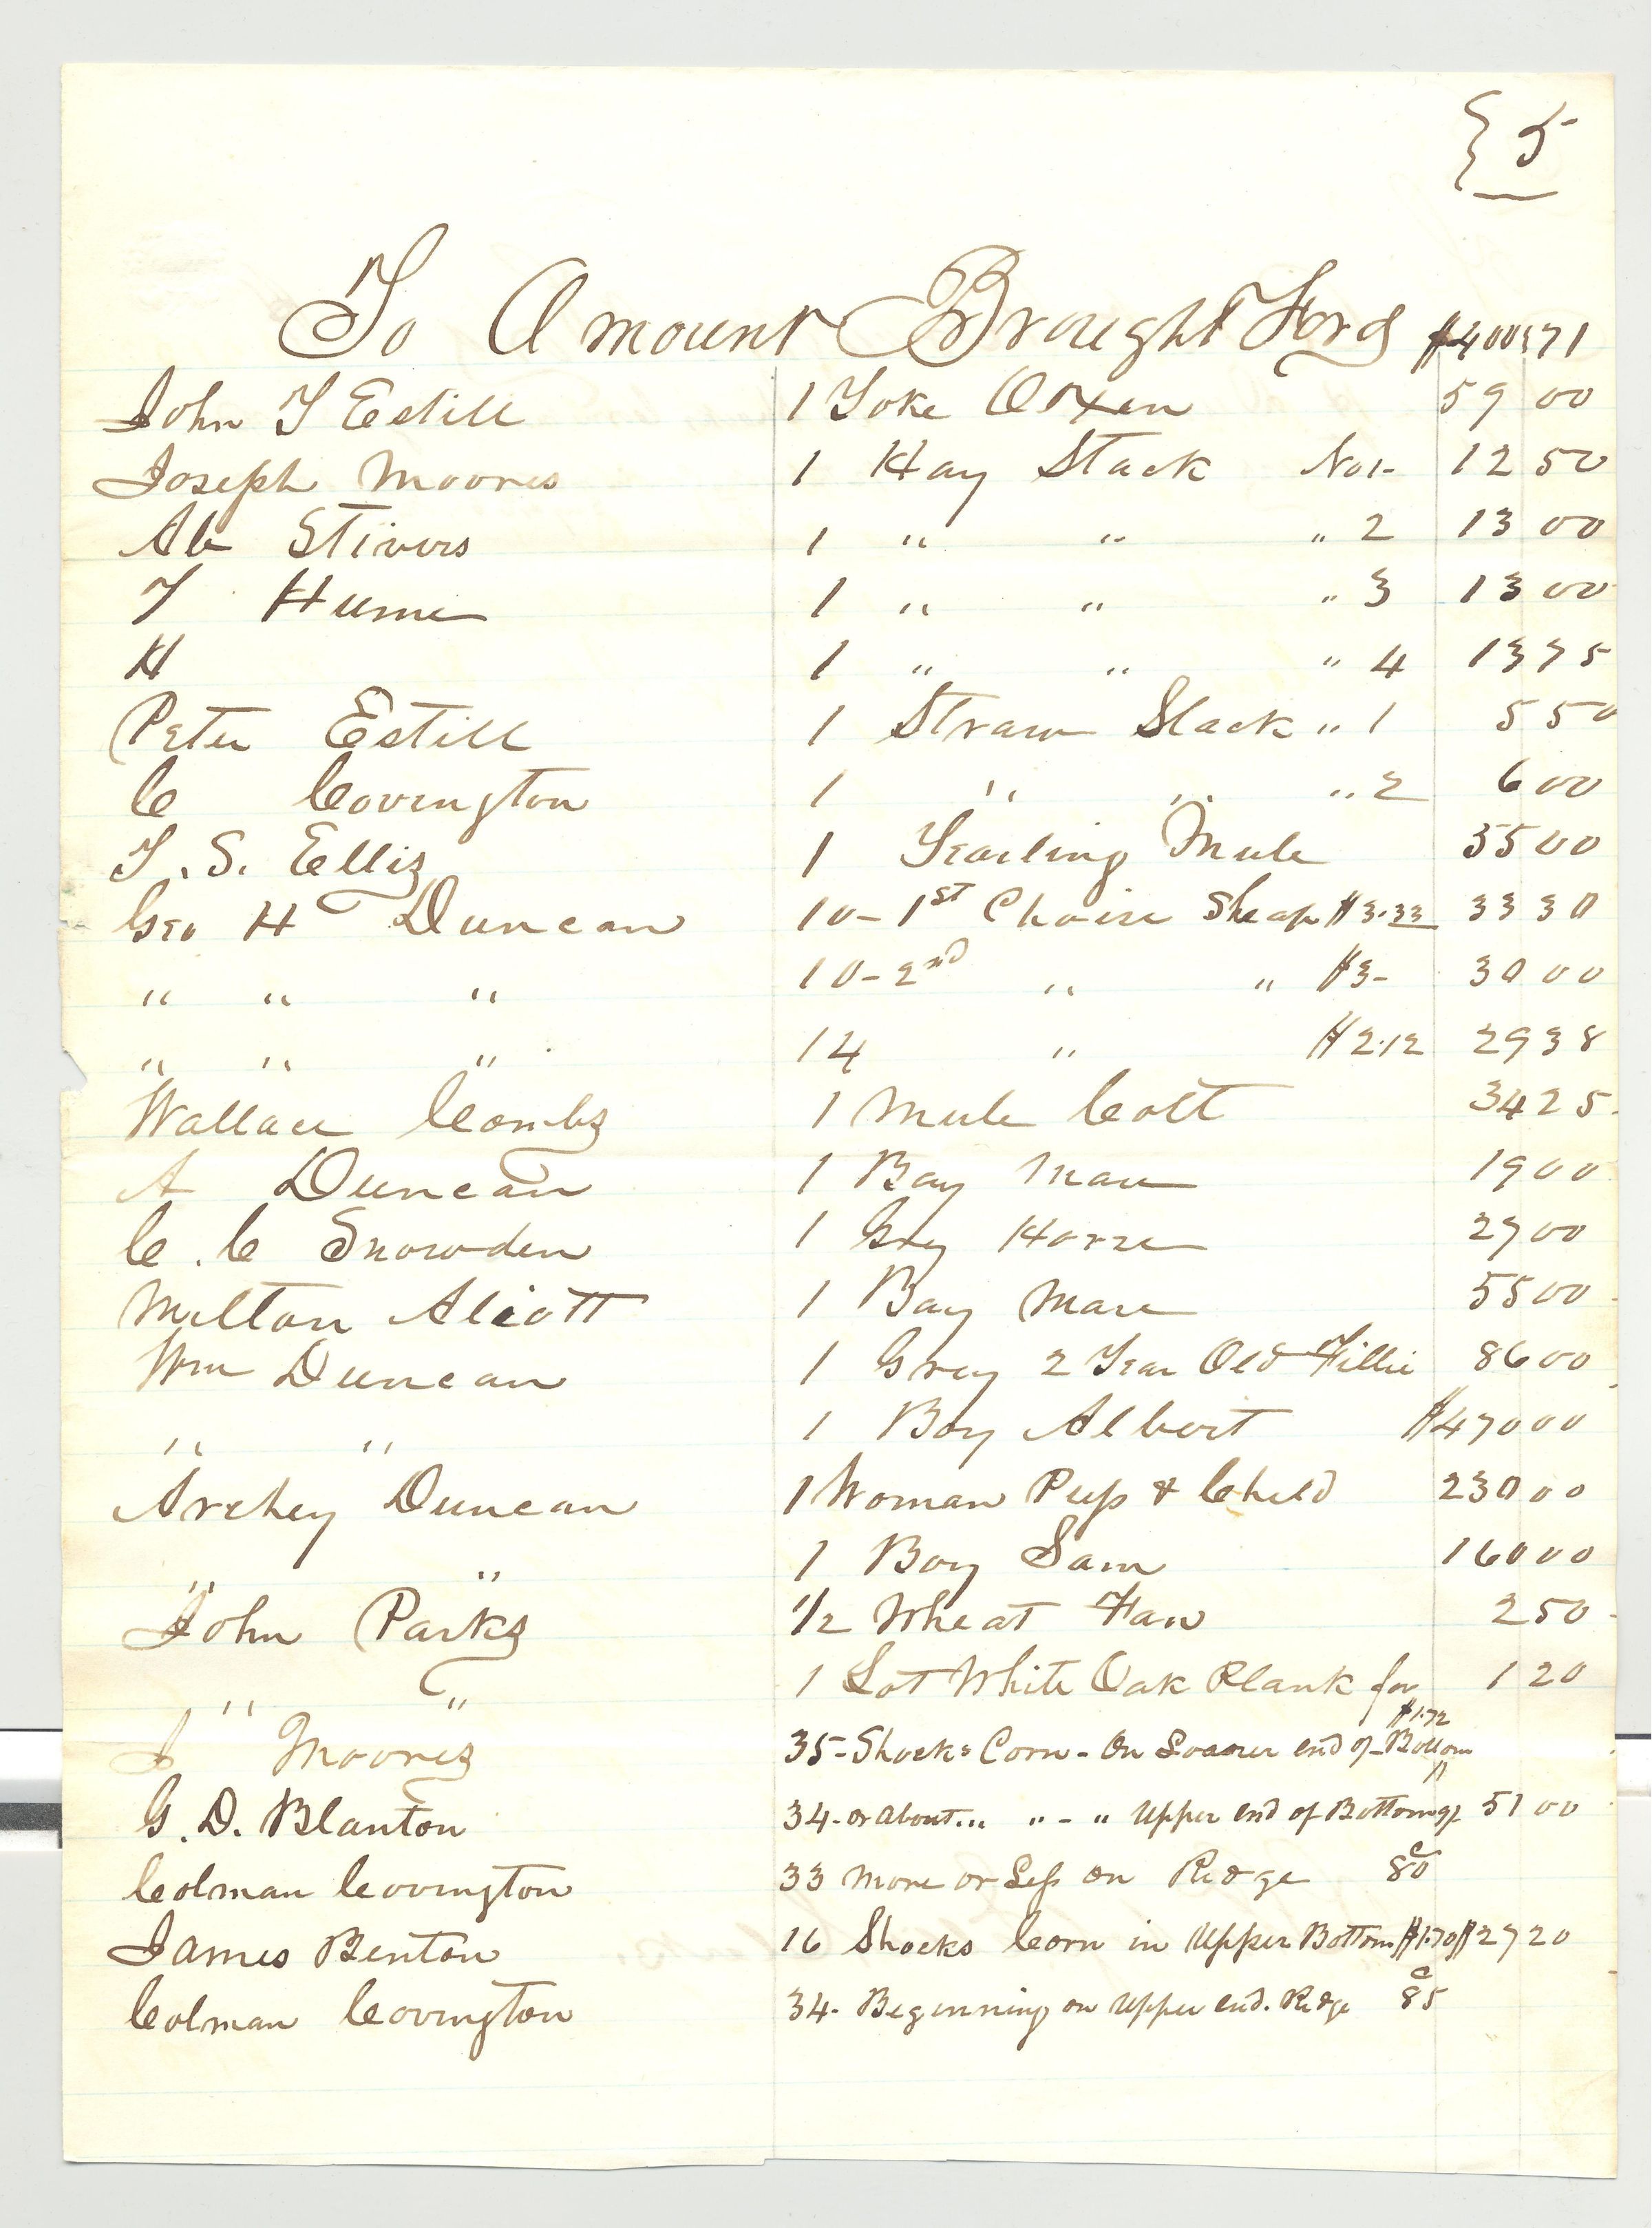 { 5
To Amount Brought Ford $400571
John T Estill 1 Yoke Oxen 59 00
Joseph Moores 1 Hay Stack No 1- 12 50
Ab Stivers 1 " " " 2 13 00
T Hume 1 " " " 3 13 00
H 1 " " " 4 13 75
Peter Estill 1 Straw Stack " 1 5 50
C Covington 1 " " " 2 6 00
T. S. Ellis 1 Yearling Mule 55 00
Geo H Duncan 10- 1st Choice Sheap $3.33 33 30
" " " 10- 2nd " " $3- 30 00
" " " 14 " $2.12 29 38
Wallace Combs 1 Mule Colt 34 25
A Duncan 1 Bay Mare 19 00
C. C Snowden 1 Gry Horse 27 00
Milton Aliott 1 Bay Mare 55 00
Wm Duncan 1 Gray 2 Year Old Fillie 86 00
" " 1 Boy Albert $470 00
Archey Duncan 1 Woman Peep & Child 230 00
" " 1 Boy Sam 160 00
John Parks 1/2 Wheat Fan 2 50
" " 1 Lot White Oak Plank for 1 20
J Moores 35- Shocks Corn - On Loawer end of Bottom $1.72 "
G. D. Blanton 34- or about... " - " Upper End of Bottom 51 00
Colman Covington 33 more or Less on Ridge 80c
James Benton 16 Shocks Corn in Upper Bottom $1.70 $27 20
Colman Covington 34- Beginning on Upper end. Ridge 85c